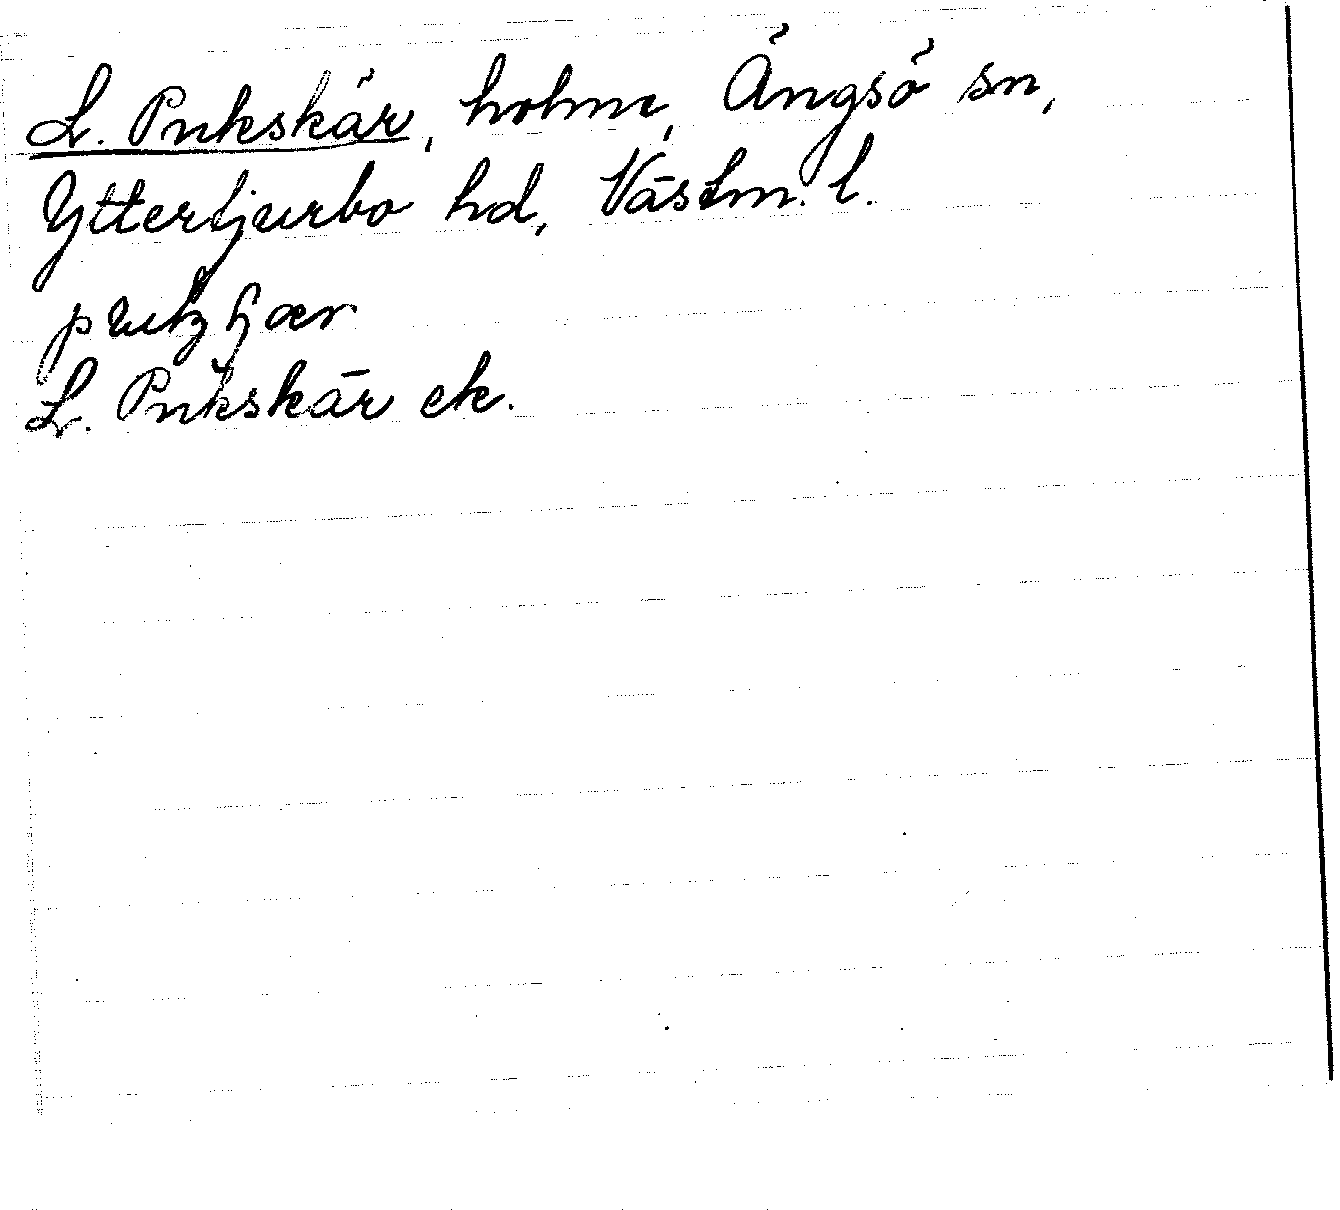 L. Pukskär, holme, Ängsö sn,
Yttertjurbo hd, Västm. l.
L. Pukskär ek.